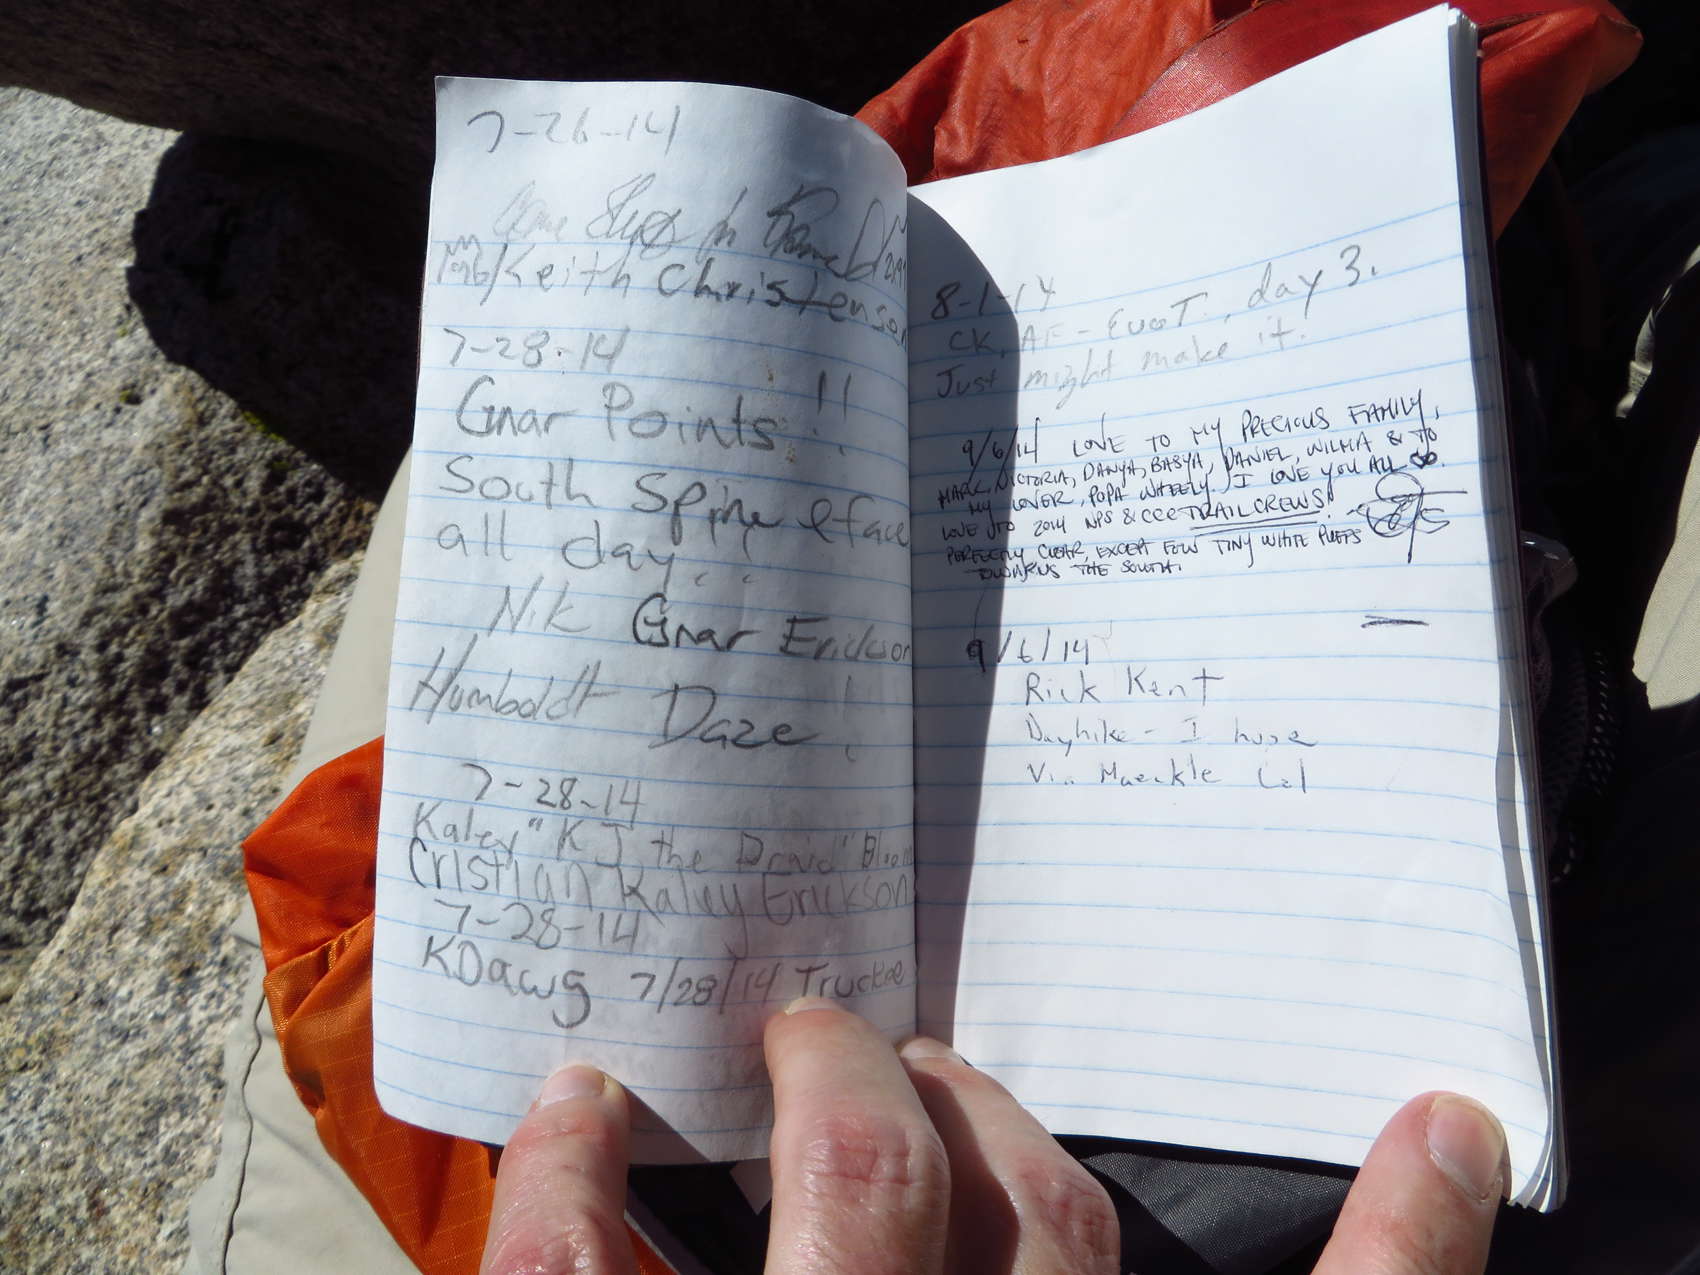 7-26-14
Keith Christensen
7-28-14
Gnar Points!!
South Spine & face
all day...
Nik Gnar Erickson
Humboldt Daze!
7-28-14
Kaley "KJ the Druid"
Cristian Kaley Erickson
7-28-14
KDawg 7/28/14 Truckee
8-1-14
CK, AF - day 3.
Just might make it.
9/6/14 LOVE TO MY PRECIOUS FAMILY,
MARK, VICTORIA, DANYA, BASYA, DANIEL, WILMA & TO
MY LOVER, POPA WHEELY. I LOVE YOU ALL SO.
LOVE TO 2014 NPS & CCC TRAIL CREWS!
PERFECTLY CLEAR, EXCEPT FEW TINY WHITE PUFFS
TOWARDS THE SOUTH.
9/6/14
Rick Kent
Dayhike - I hope